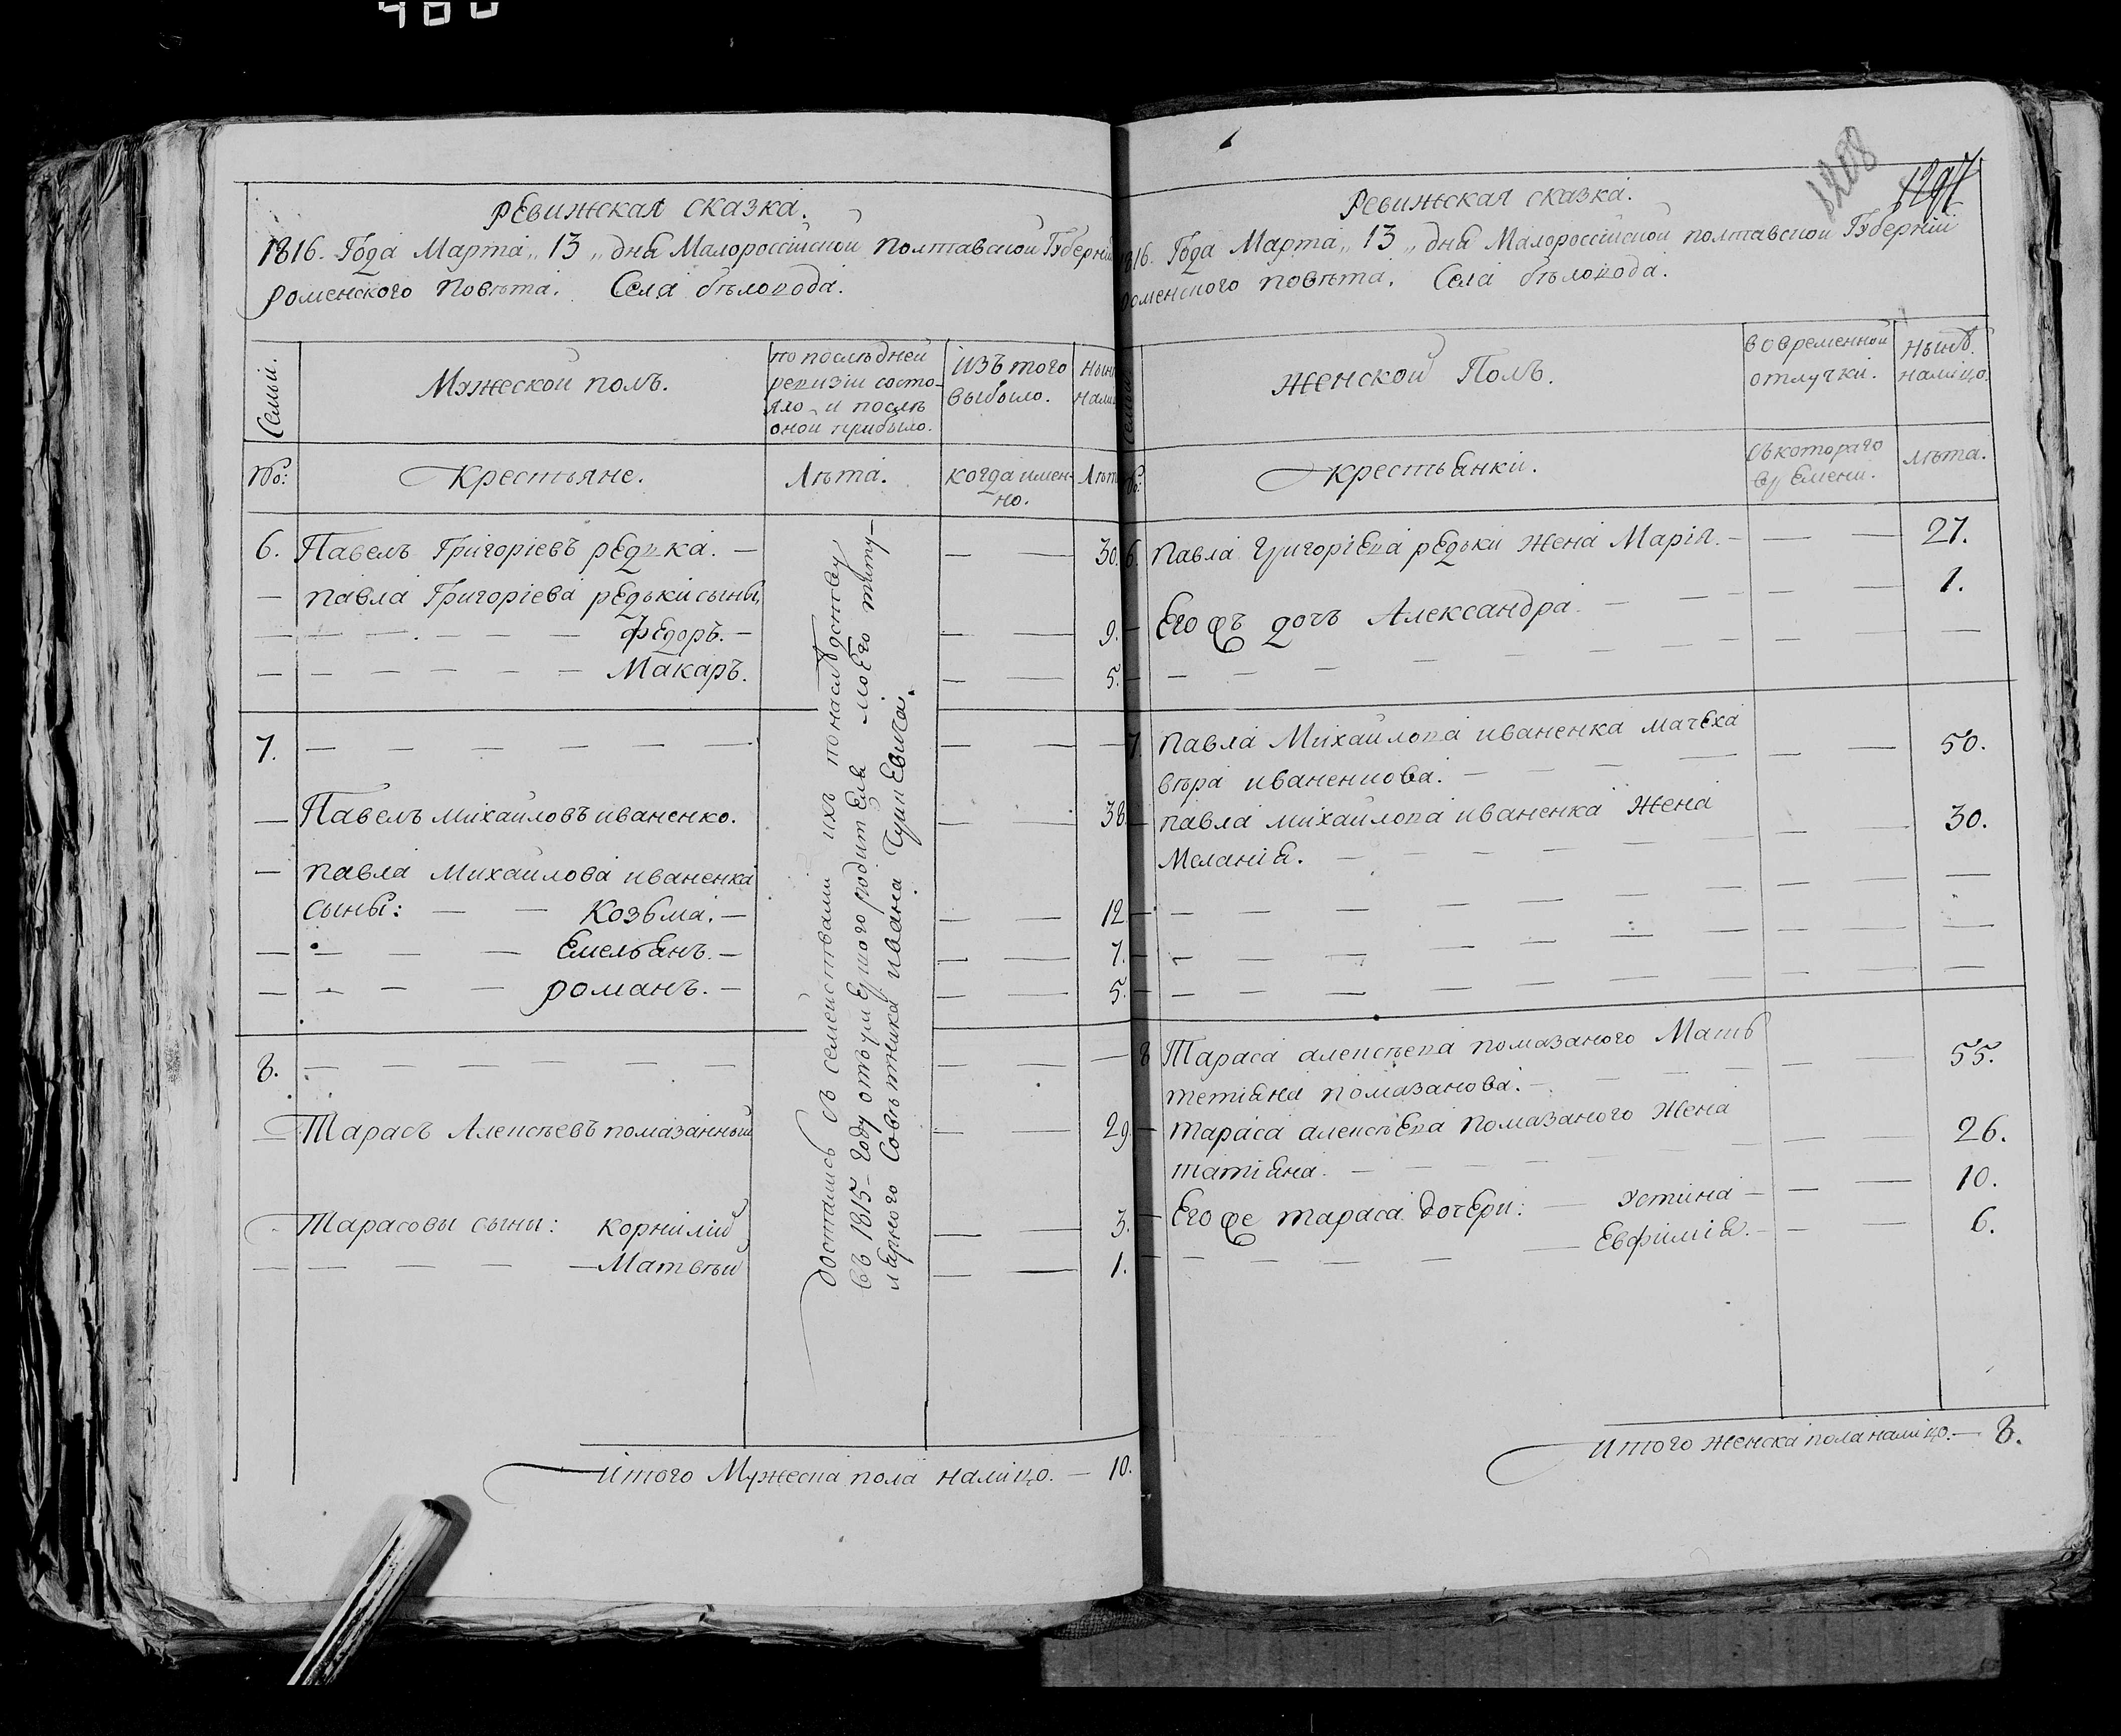 480
Ревижская сказка.
1816. Года Марта „13„ дня Малороссійской полтавской Губерніи
роменского повѣта. Села бѣловода.
Семьи.
Мужеской полъ.
по послѣдней
ревизіи состо-
яло и послѣ
оной прибыло.
Изъ того
выбыло.
Нын
нали
№:
Крестьяне.
Лѣта.
когда имен-
но.
Лѣт
6. Павелъ Григоріевъ редька. — — — 30.
— павла Григоріева редьки сыны,
— — — — — Федоръ. — — — 9.
— — — — — — Макаръ. — — 5.
7. — — — — — — — — — —
— Павелъ михайловъ иваненко. — — 38.
— павла Михайлова иваненка
сыны: — — Козьма. — — — 12.
— — — — Емельянъ. — — — 7.
— — — — романъ. — — — 5.
8. — — — — — — — — —
— Тарасъ Алексѣевъ помазанный — — 29.
— Тарасовы сыны: корнилий — — 3.
— — — — — Матвѣй — — 1.
достались съ семействами ихъ по наслѣдству
въ 1815- году отъ умершого родителя моего титу-
лярного Совѣтника ивана
Итого Мужеска пола налицо. — 10.
1208
Ревижская сказка.
1816. Года Марта „13„ дня Малороссійской полтавской Губерніи
роменского повѣта. Села бѣловода.
Женской Полъ.
во временной
отлучки.
Нынѣ
налицо.
№:
крестьянки.
съ котораго
времени.
лѣта.
6. павла Григоріева редьки жена Марія. — — — 27.
— Его жъ дочь Александра. — — — — — 1.
— — — — — — — — — — —
7. павла Михайлова иваненка мачеха
вѣра иваненкова. — — — — — 50.
— павла михайлова иваненка жена
Меланія. — — — — — — — 30.
— — — — — — — — — — —
— — — — — — — — — — —
— — — — — — — — — — —
8 Тараса алексѣева помазаного Мать
тетіяна помазанова. — — — — 55.
— тараса алексѣева помазаного жена
татіяна. — — — — — — — 26.
— Его же тараса дочери: — устина — — — 10.
— — — — — — Евфимія. — — — 6.
Итого женска пола налицо. — 8.